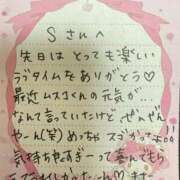 Sさんへ
先日はとっても楽しい
ラブタイムをありがとう♡
最近ムスコんの元気が…
なんて言っていたけど、ぜんぜん
やーん(笑)めっちゃスゴかってよ!!
気持ちやすぎーって喜んでもら